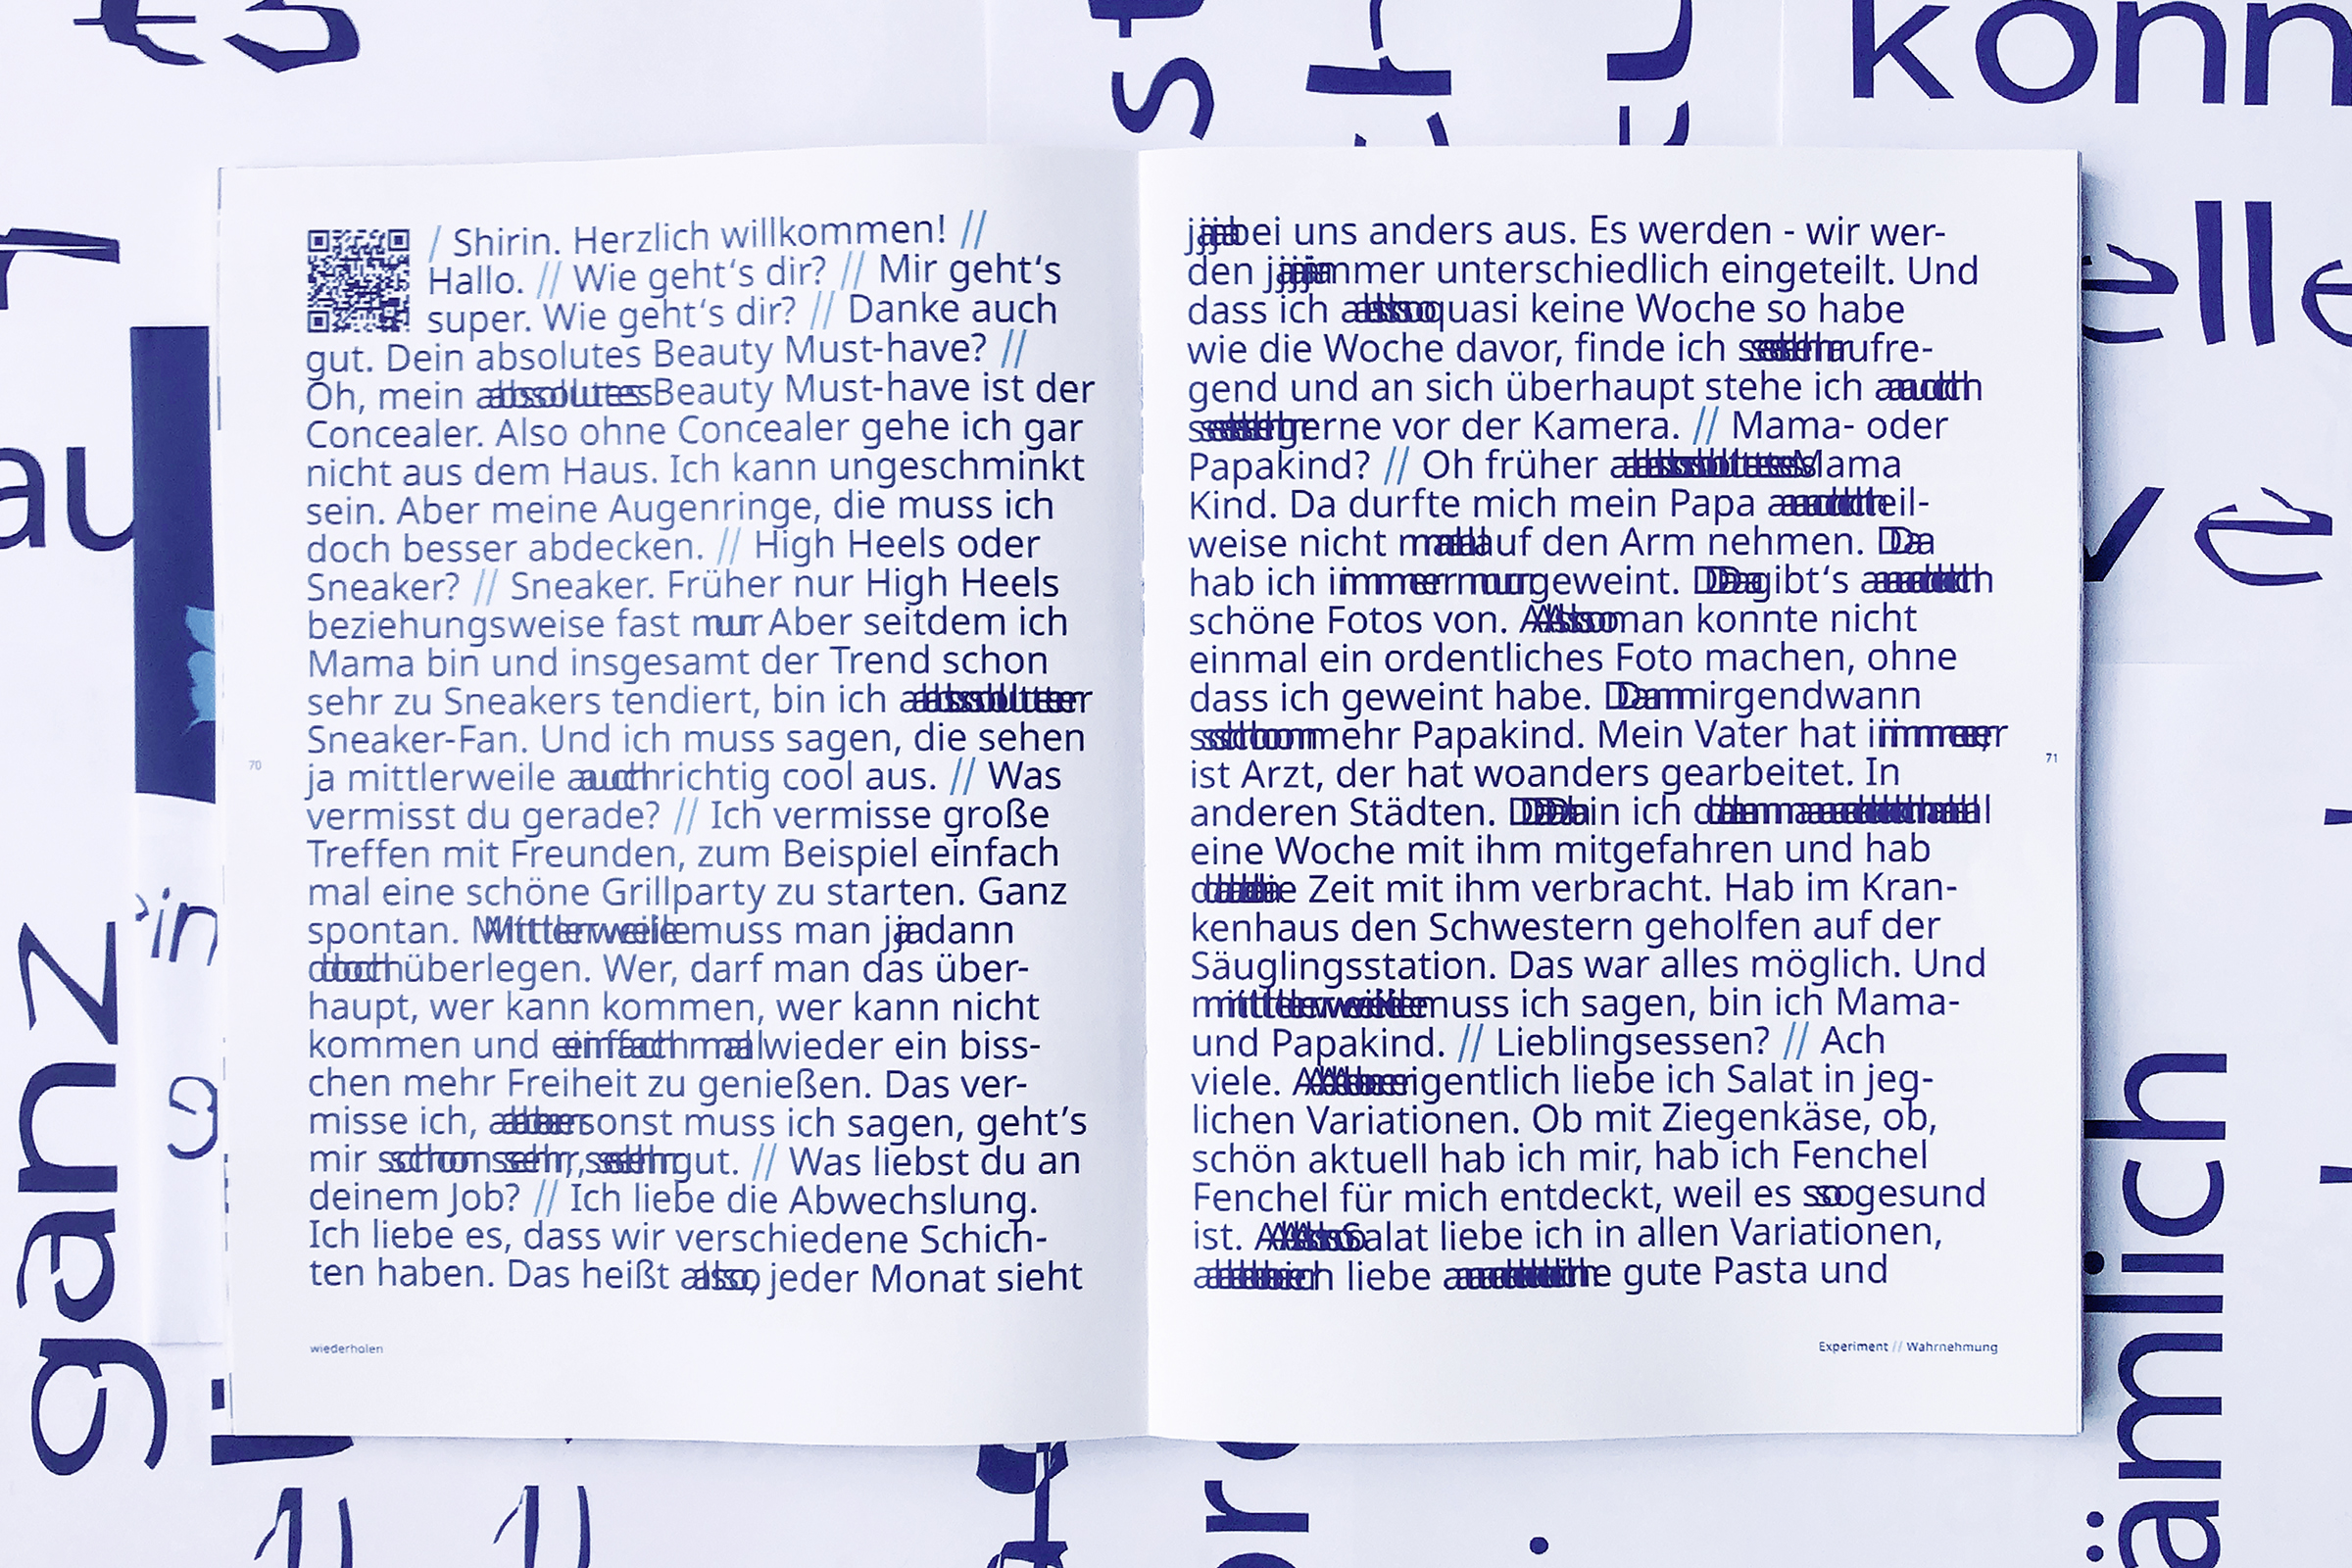 könn
/ Shirin. Herzlich willkommen! //
Hallo. // Wie geht‘s dir? // Mir geht‘s
super. Wie geht‘s dir? // Danke auch
gut. Dein absolutes Beauty Must-have? //
Oh, mein absolutes Beauty Must-have ist der
Concealer. Also ohne Concealer gehe ich gar
nicht aus dem Haus. Ich kann ungeschminkt
sein. Aber meine Augenringe, die muss ich
doch besser abdecken. // High Heels oder
Sneaker? // Sneaker. Früher nur High Heels
beziehungsweise fast nur Aber seitdem ich
Mama bin und insgesamt der Trend schon
sehr zu Sneakers tendiert, bin ich absoluter
Sneaker-Fan. Und ich muss sagen, die sehen
ja mittlerweile auch richtig cool aus. // Was
vermisst du gerade? // Ich vermisse große
Treffen mit Freunden, zum Beispiel einfach
mal eine schöne Grillparty zu starten. Ganz
spontan. Mittlerweile muss man ja dann
doch überlegen. Wer, darf man das über-
haupt, wer kann kommen, wer kann nicht
kommen und einfach mal wieder ein biss-
chen mehr Freiheit zu genießen. Das ver-
misse ich, aber sonst muss ich sagen, geht’s
mir schon sehr, sehr gut. // Was liebst du an
deinem Job? // Ich liebe die Abwechslung.
Ich liebe es, dass wir verschiedene Schich-
ten haben. Das heißt also, jeder Monat sieht
70
wiederholen
ja bei uns anders aus. Es werden - wir wer-
den ja immer unterschiedlich eingeteilt. Und
dass ich also quasi keine Woche so habe
wie die Woche davor, finde ich sehr aufre-
gend und an sich überhaupt stehe ich auch
sehr gerne vor der Kamera. // Mama- oder
Papakind? // Oh früher absolutes Mama
Kind. Da durfte mich mein Papa auch teil-
weise nicht mal auf den Arm nehmen. Da
hab ich immer nur geweint. Da gibt‘s auch
schöne Fotos von. Also man konnte nicht
einmal ein ordentliches Foto machen, ohne
dass ich geweint habe. Dann irgendwann
schon mehr Papakind. Mein Vater hat immer,
ist Arzt, der hat woanders gearbeitet. In
anderen Städten. Da bin ich dann auch mal
eine Woche mit ihm mitgefahren und hab
da die Zeit mit ihm verbracht. Hab im Kran-
kenhaus den Schwestern geholfen auf der
Säuglingsstation. Das war alles möglich. Und
mittlerweile muss ich sagen, bin ich Mama-
und Papakind. // Lieblingsessen? // Ach
viele. Aber eigentlich liebe ich Salat in jeg-
lichen Variationen. Ob mit Ziegenkäse, ob,
schön aktuell hab ich mir, hab ich Fenchel
Fenchel für mich entdeckt, weil es so gesund
ist. Also Salat liebe ich in allen Variationen,
aber ich liebe auch eine gute Pasta und
71
Experiment // Wahrnehmung
elle
ganz
ämlich